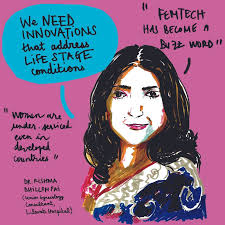 We NEED
INNOVATIONS
that address
LIFE STAGE
conditions
" FEMTECH
HAS BECOME A
BUZZ WORD"
" Women are
under-serviced
even in
developed
countries "
DR. RISHMA
DHILLON PAI
(Senior Gynaecology
Consultant,
Lilavati Hospital)